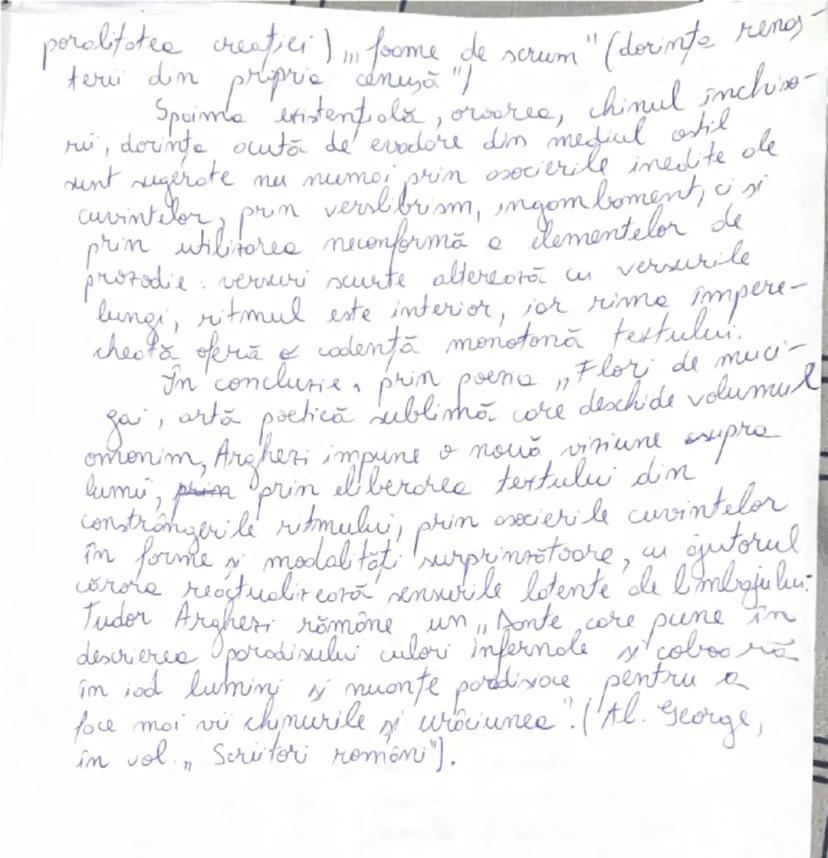 poralitatea creației) „, foame de scrum" (dorința renaș-
terii din propria cenușă")
Spaima existențială, oroarea, chinul închiso-
rii, dorința acută de evadare din mediul ostil
sunt sugerate nu numai prin asocierile inedite ale
cuvintelor, prin verslibrism, ingambament, ci și
prin utilizarea neconformă a elementelor de
prozodie: versuri scurte alterează cu versurile
lungi, ritmul este interior, iar rima împere-
cheată oferă o cadență monotonă textului.
În concluzie, prin poema „Flori de muci-
gai", artă poetică sublimă care deschide volumul
omonim, Arghezi impune o nouă viziune asupra
lumii, prin prin eliberarea textului din
constrângerile ritmului, prin asocierile cuvintelor
în forme și modalități surprinzătoare, cu ajutorul
cărora reactualizează sensurile latente ale limbajului.
Tudor Arghezi rămâne un „Dante care pune în
descrierea paradisului culori infernale și coboară
în iad lumini și nuanțe paradisiace pentru a
face mai vii chinurile și urâciunea". (Al. George,
în vol. „Scriitori români").